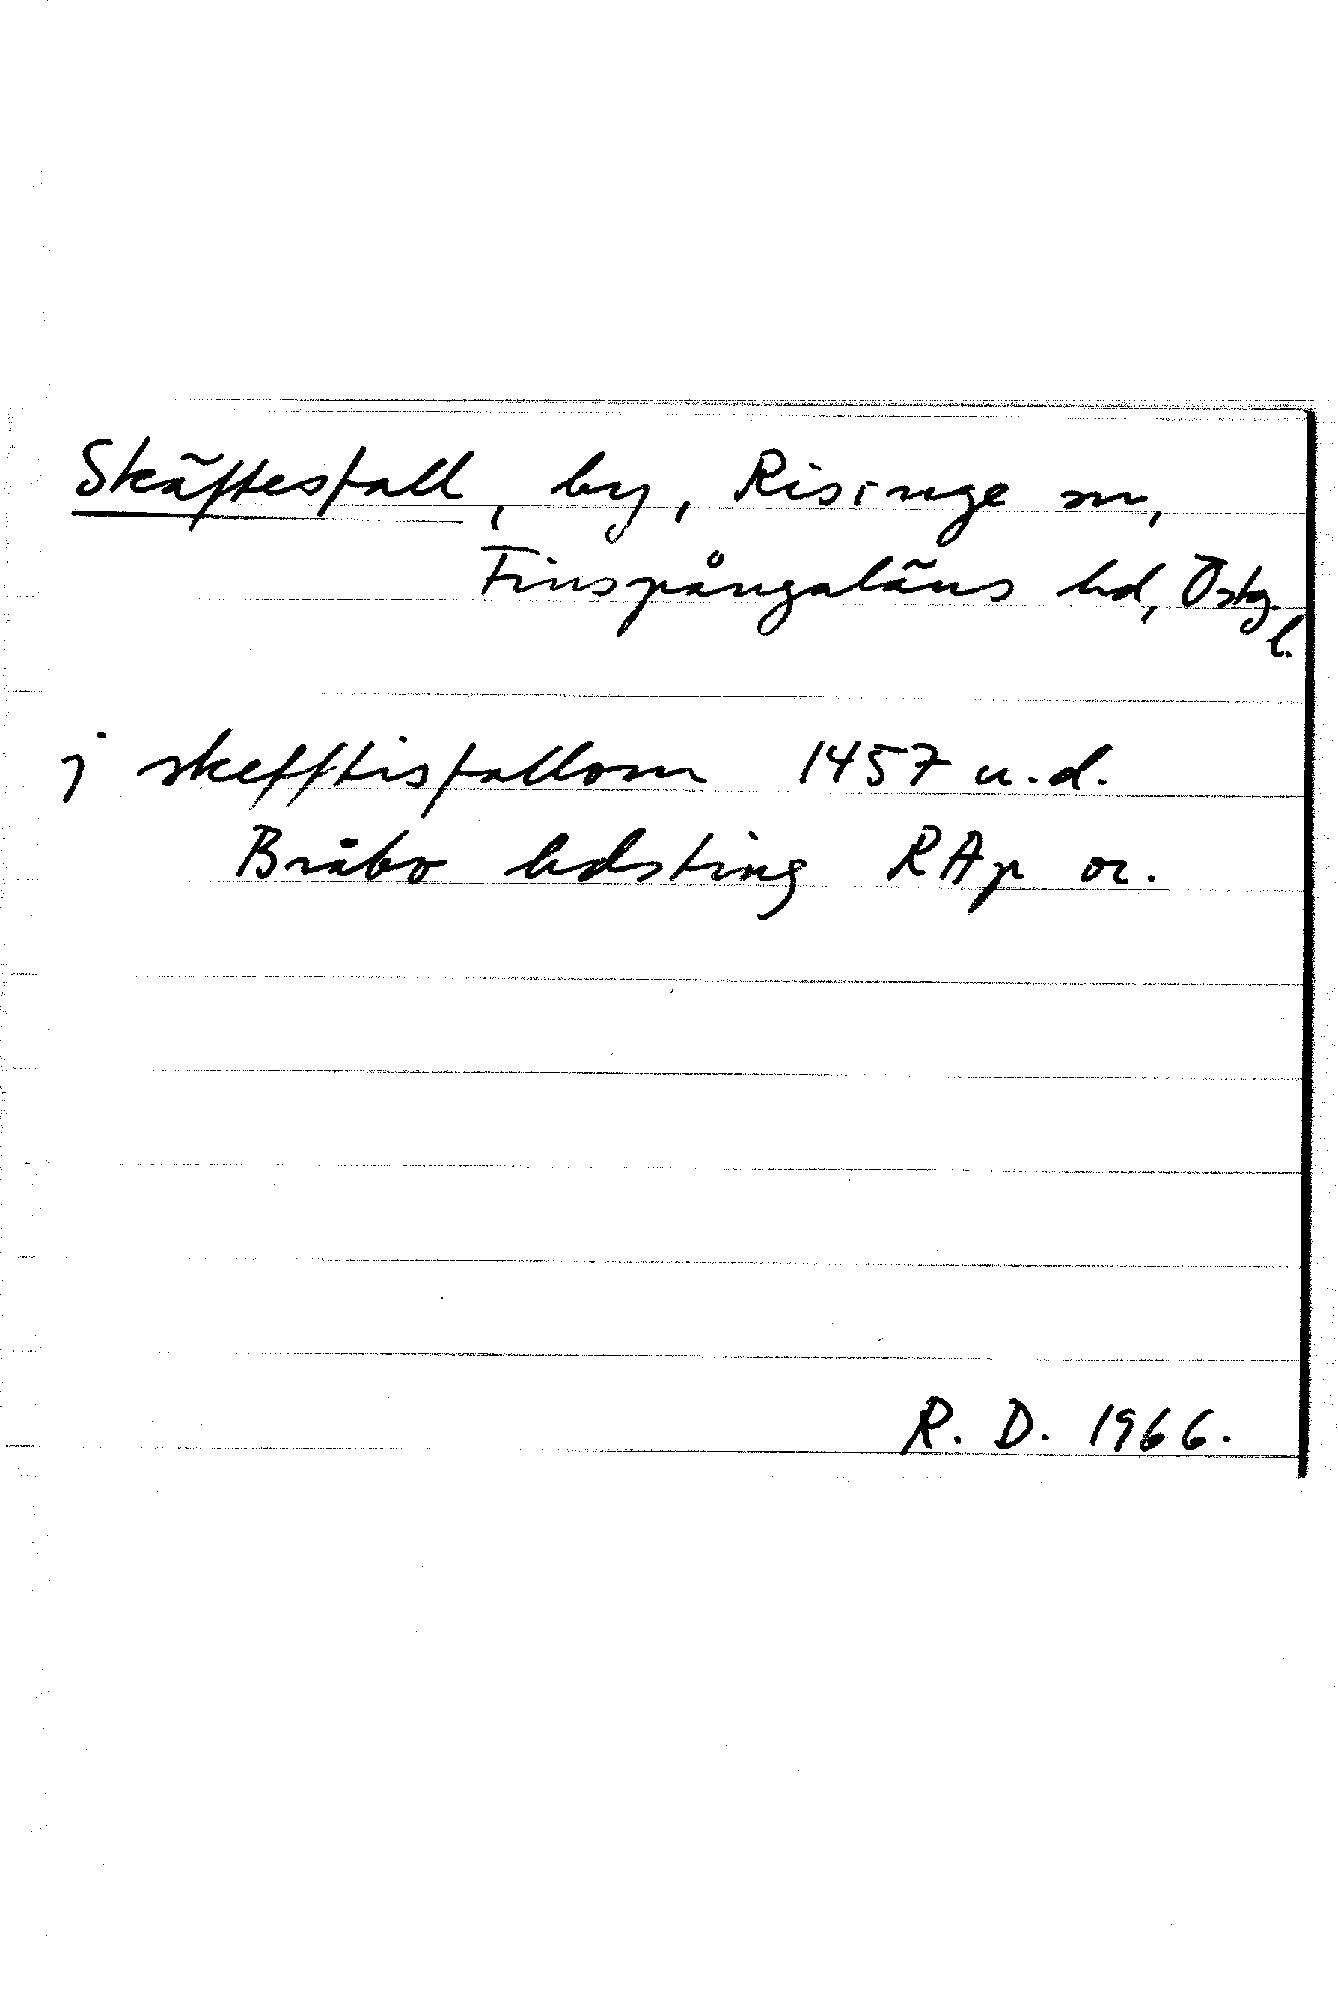 Skäftesfall, by, Risinge sn,
Finspångaläns hd, Östg.
l.
j skefftisfallom 1457 u.d.
Bråbo hdsting RAp or.
R. D. 1966.